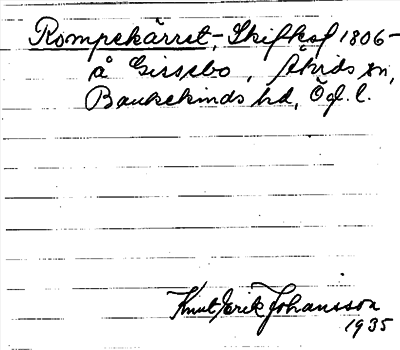 Rompekärret, Skifksf 1806-
å Gissebo, Åtvids sn,
Bankekinds hd, Ög. l.
Knut Erik Johansson
1935